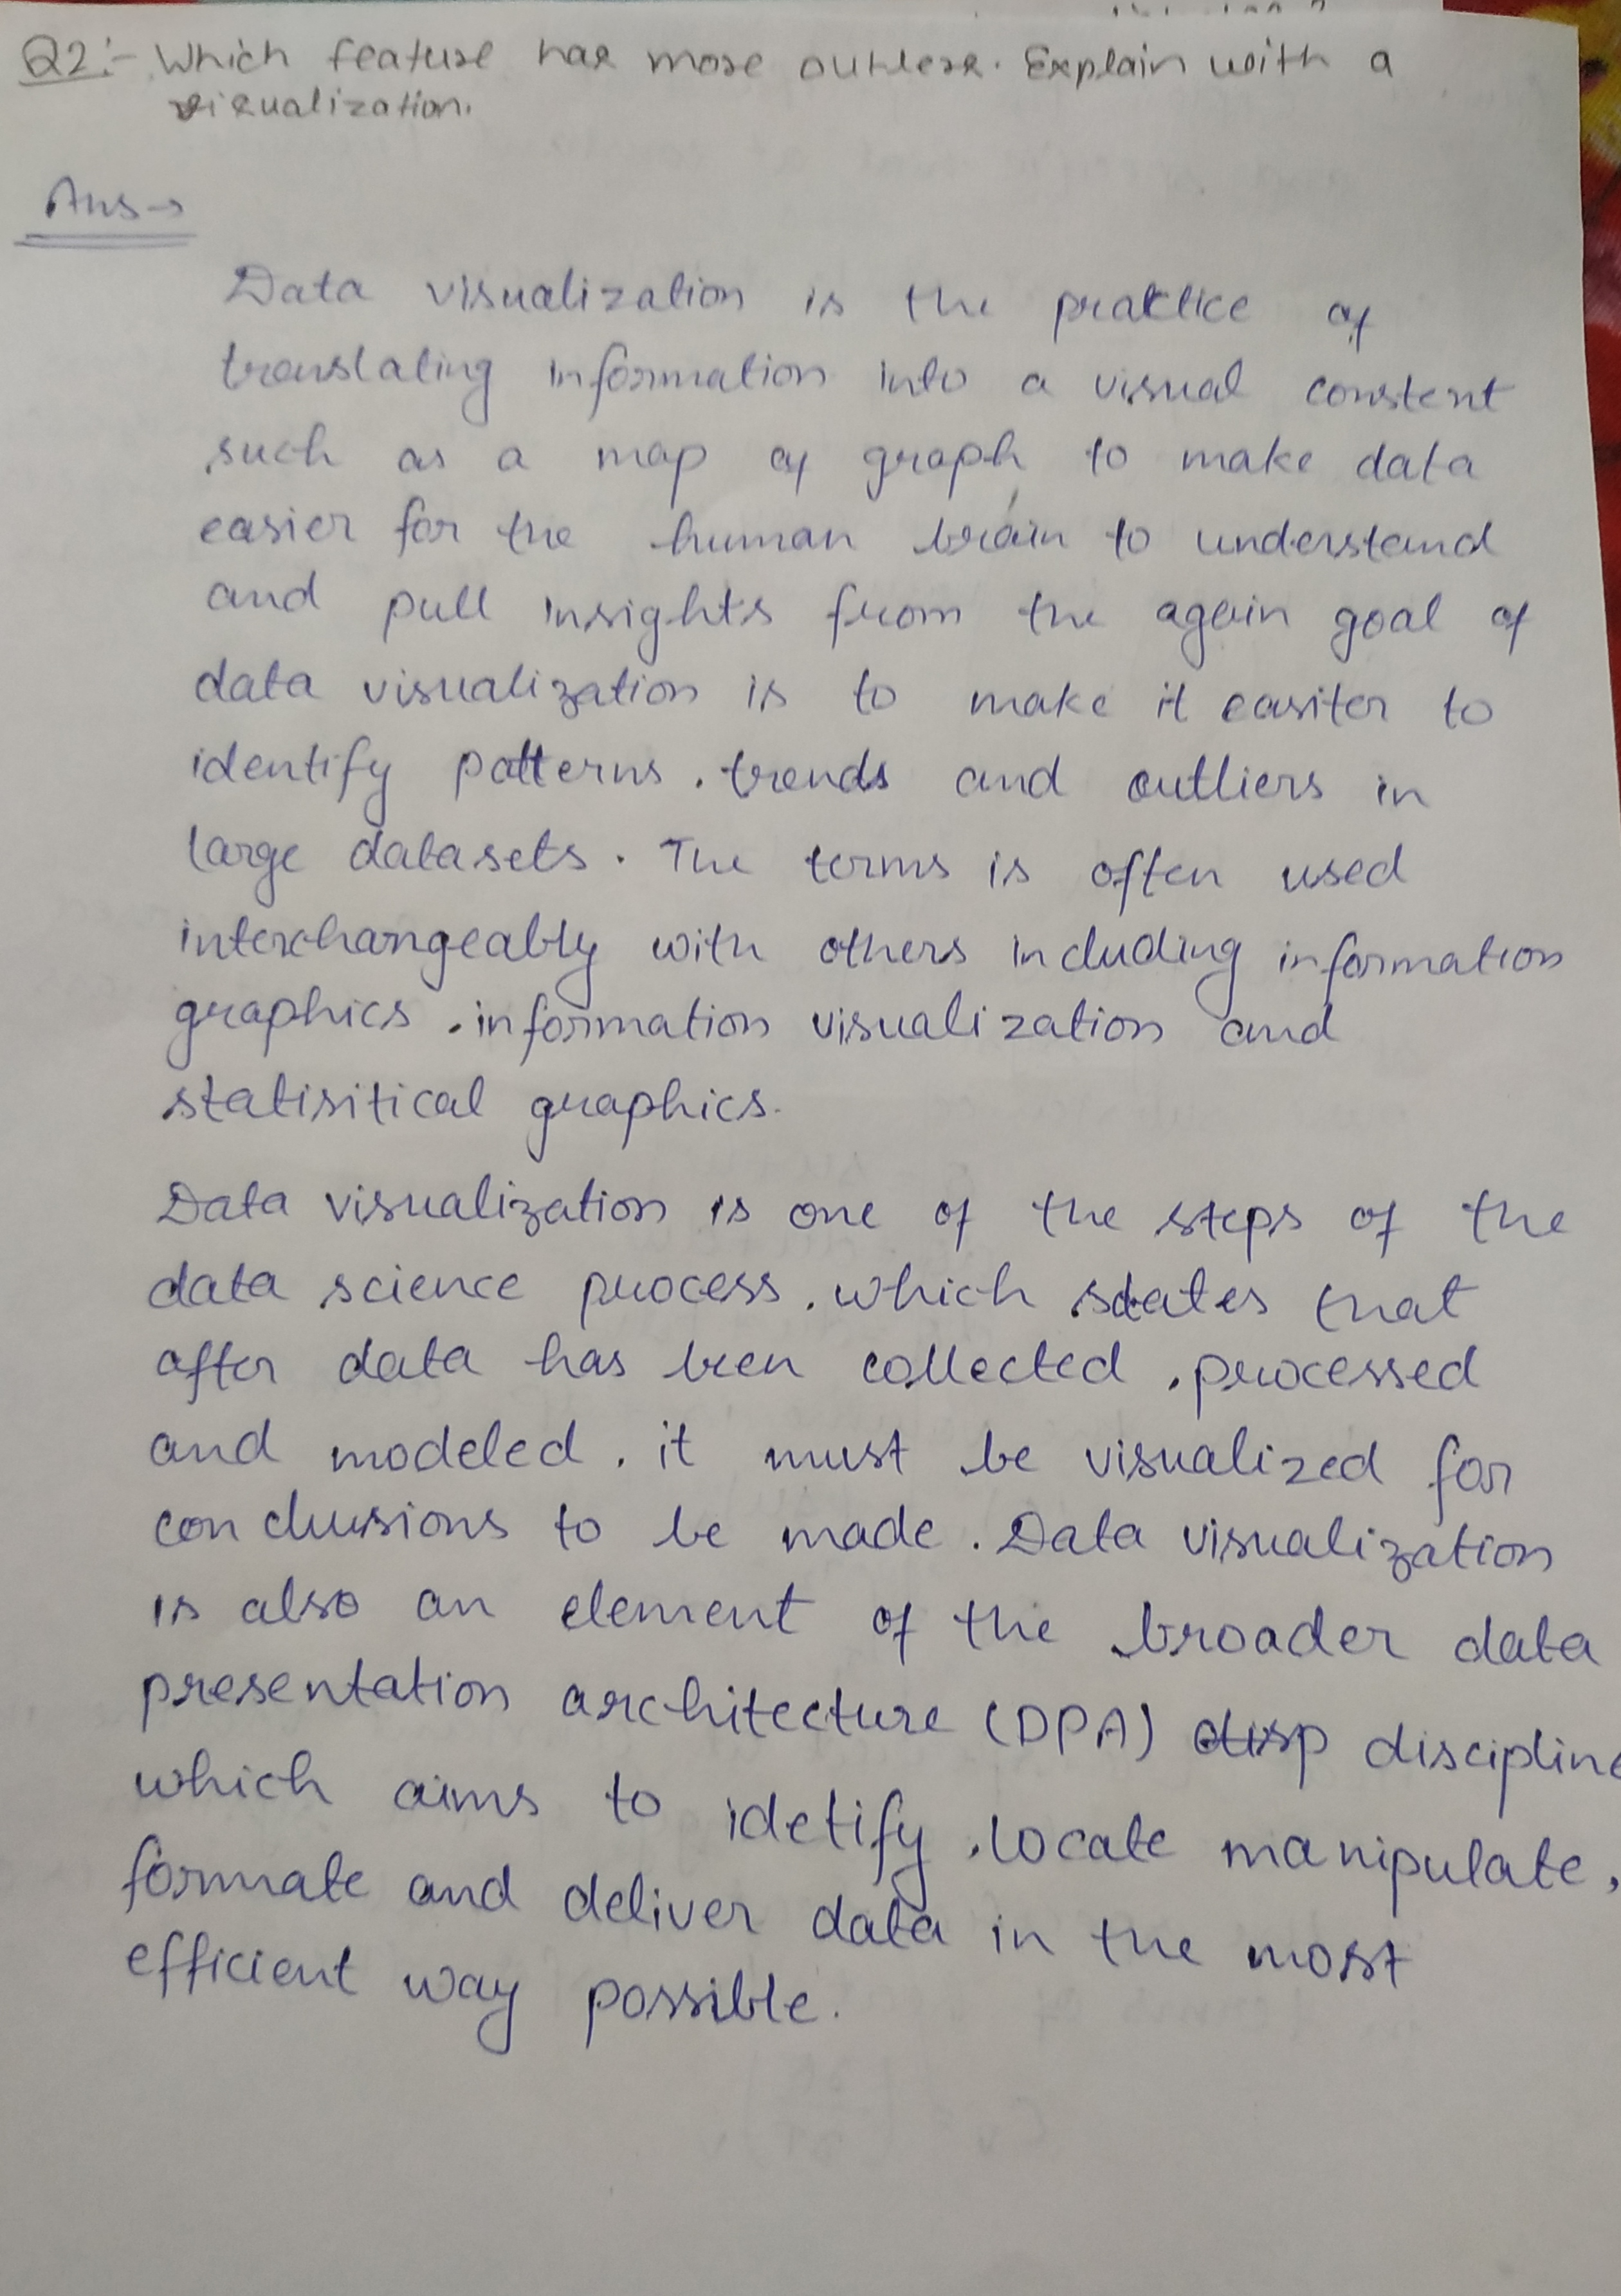 Q2:- Which feature has more outliers. Explain with a
visualization.
Ans→
Data visualization is the practice of
translating information into a visual constent
such as a map of graph to make data
easier for the human brain to understand
and pull insights from the again goal of
data visualization is to make it easiter to
identify patterns, trends and outliers in
large datasets. The terms is often used
interchangeably with others including information
graphics, information visualization and
statisitical graphics.
Data visualization is one of the steps of the
data science process, which states that
after data has been collected, processed
and modeled, it must be visualized for
conclusions to be made. Data visualization
is also an element of the broader data
presentation architecture (DPA) disp discipline
which aims to idetify, locate manipulate,
formate and deliver data in the most
efficient way possible.